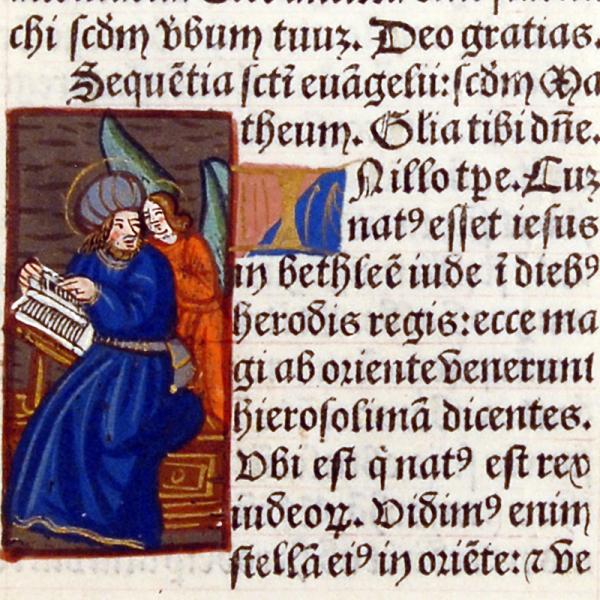 chi scḋm ṽbum tuuʒ. Deo gratias.
Sequẽtia sctĩ euãgelii: scḋm Ma
theum. Gl̃ia tibi dñe.
IN illo tp̃e. Cuʒ
natꝰ esset iesus
in bethleẽ iude ĩ diebꝰ
herodis regis: ecce ma
gi ab oriente venerunt
hierosolimã dicentes.
Vbi est q̇ natꝰ est rex
iudeoꝝ. Vidimꝰ enim
stellã eiꝰ in oriẽte: ⁊ ve